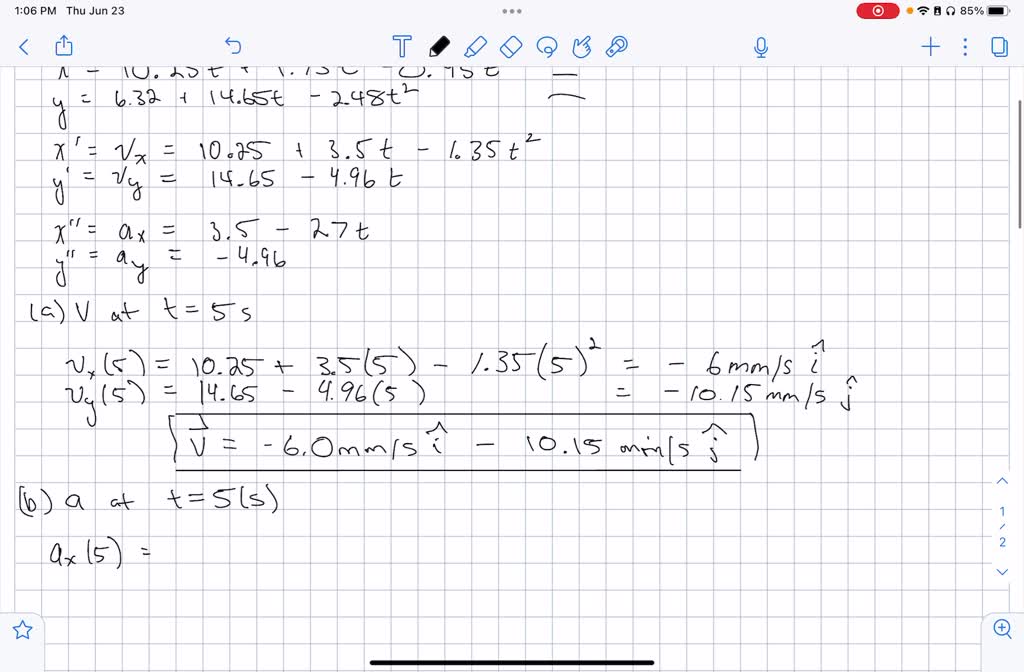 1:06 PM Thu Jun 23
85%
y = 6.32 + 14.65t - 2.48t²
x' = Vx = 10.25 + 3.5t - 1.35t²
y' = Vy = 14.65 - 4.96t
x'' = ax = 3.5 - 2.7t
y'' = ay = -4.96
(a) V at t = 5s
Vx(5) = 10.25 + 3.5(5) - 1.35(5)² = -6mm/s î
Vy(5) = 14.65 - 4.96(5) = -10.15 mm/s ĵ
V⃗ = -6.0mm/s î - 10.15 mm/s ĵ
(b) a at t = 5(s)
ax(5) =
1
/
2